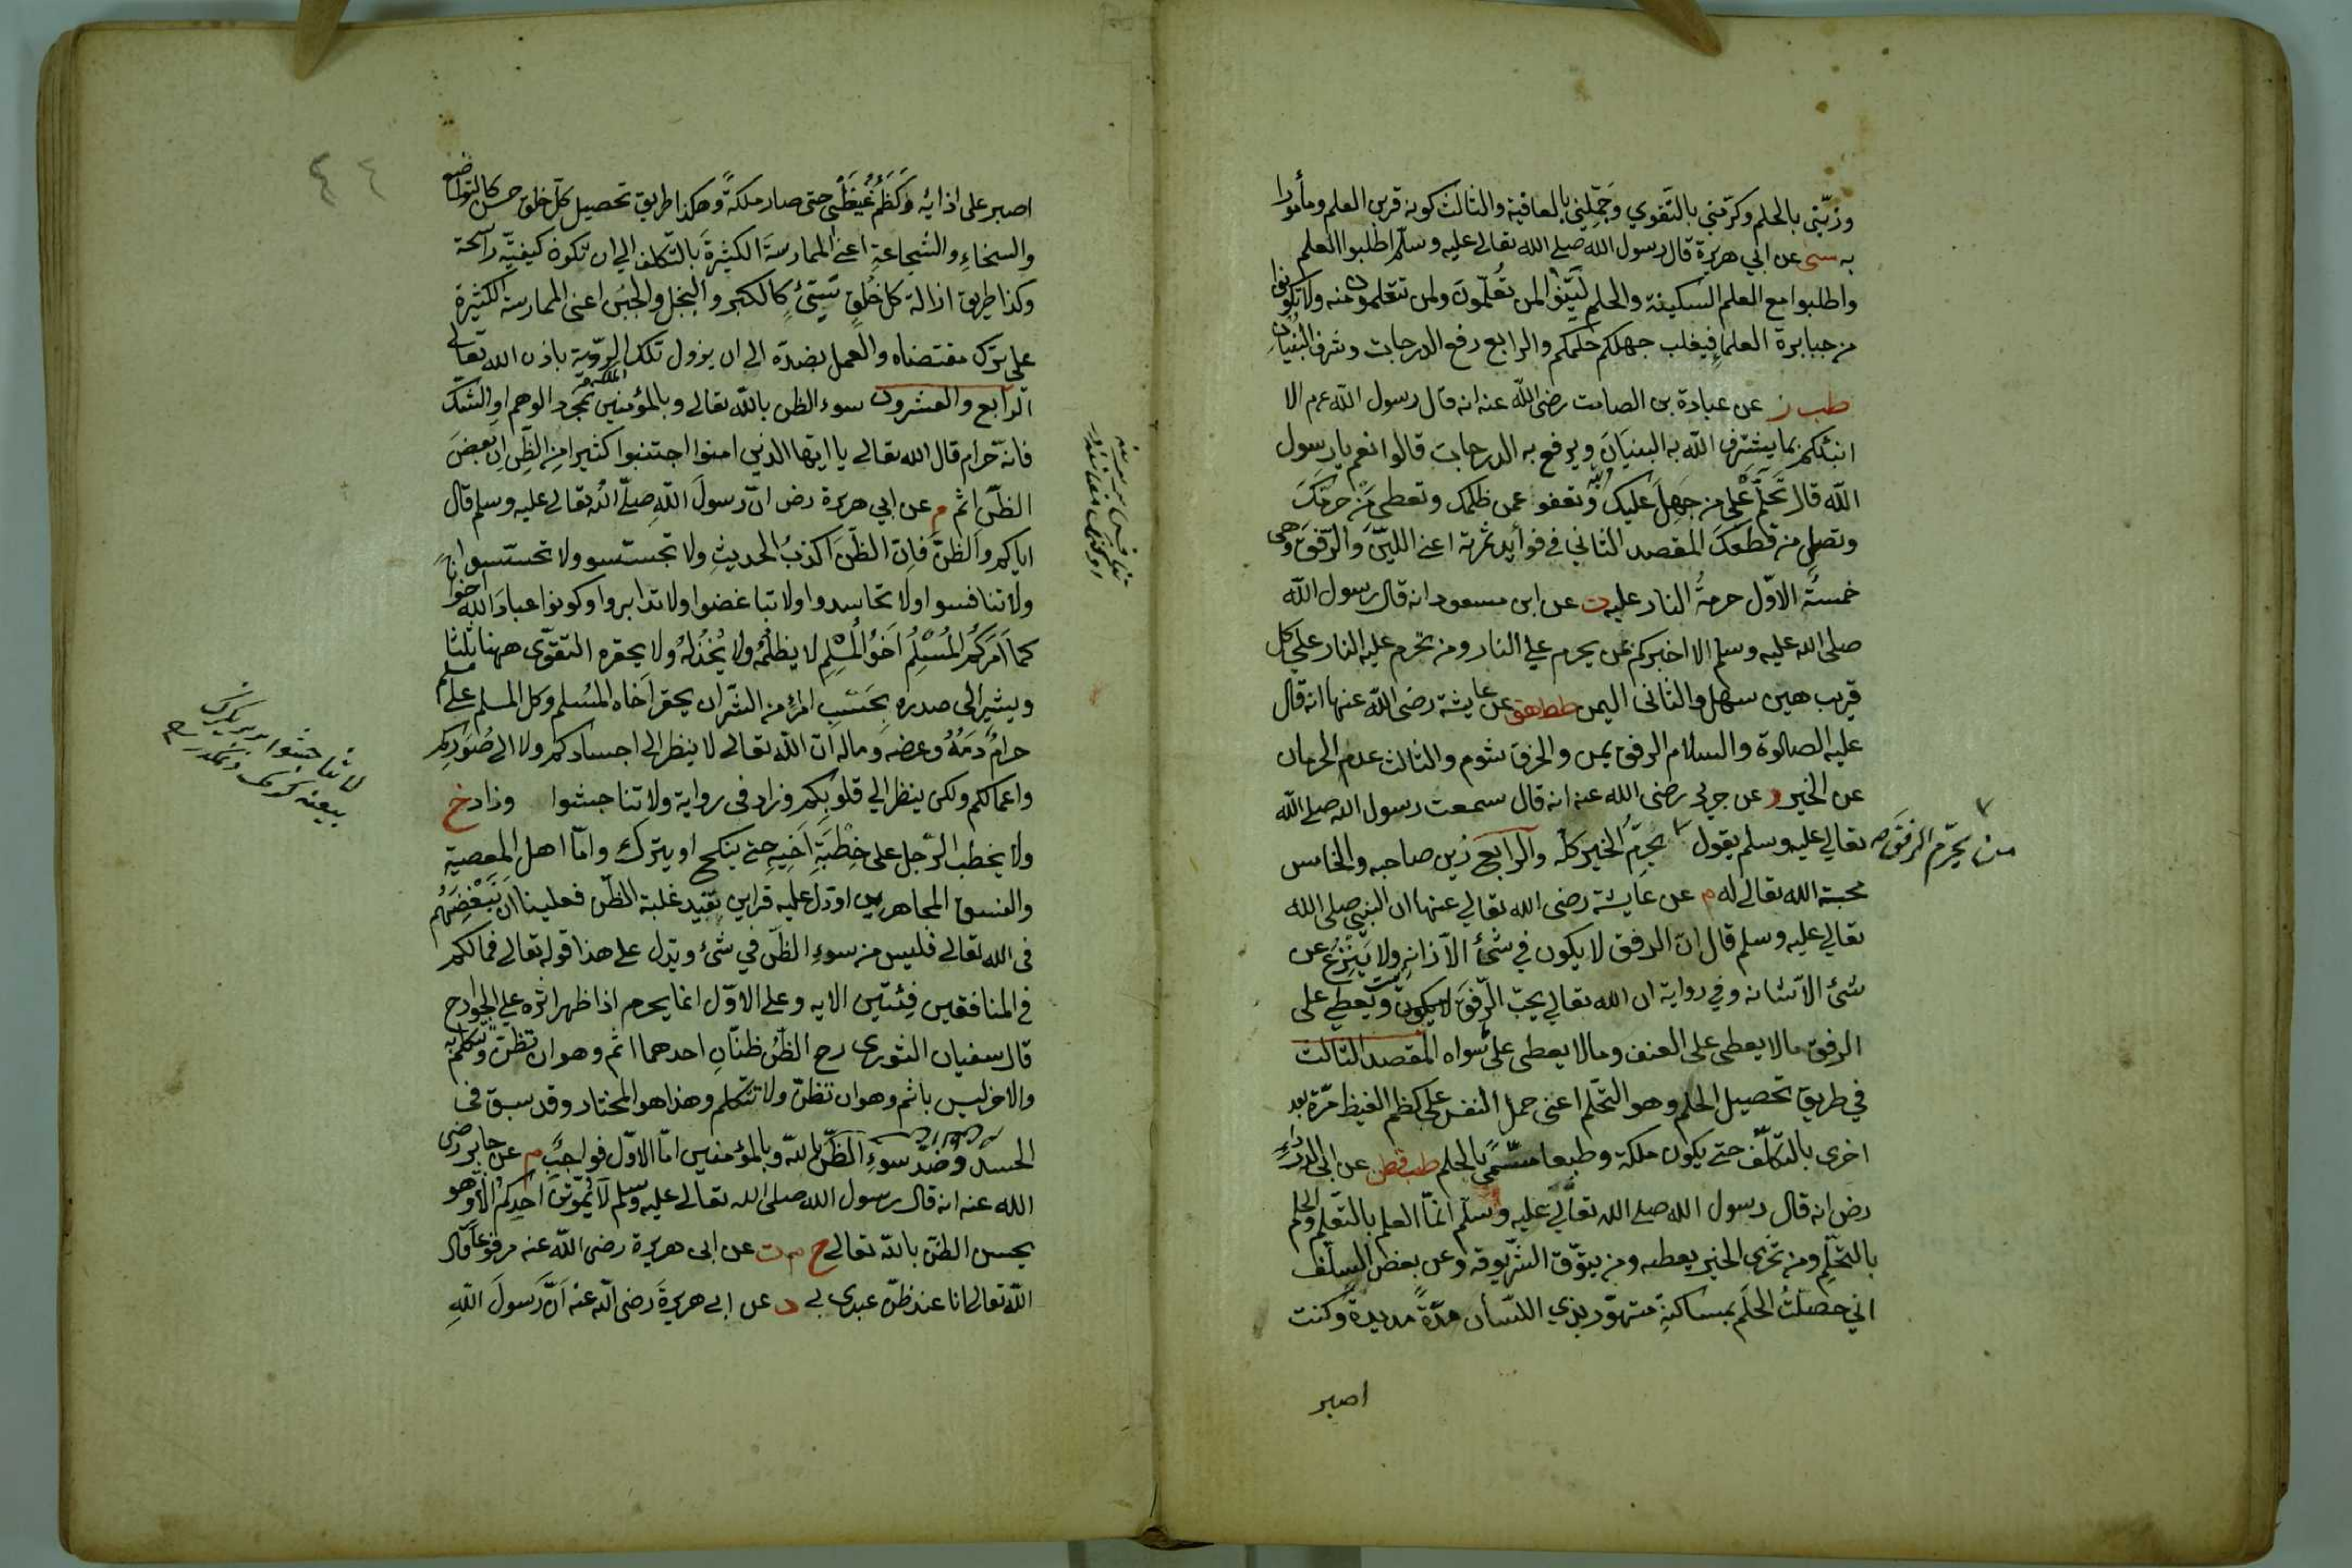 وزيّنى بالحلم وكرّمنى بالتقوي وجمّلنى بالعافية والثالث كونه قرين العلم ومأمورا
به سنى عن ابي هريرة قال رسول الله صلى الله تعالى عليه وسلم اطلبوا العلم
واطلبوا مع العلم السكينة والحلم ليّنوا لمن تُعلّمون ولمن تتعلمون منه ولا تكونوا
من جبابرة العلماء فيغلب جهلكم حلمكم والرابع رفع الدرجات وشرف البنيان
طب ز عن عبادة بن الصامت رضى الله عنه انه قال رسول الله عم الا
انبئكم بما يشرف الله به البنيان ويرفع به الدرجات قالوا نعم يا رسول
الله قال تحلّم على من جهل عليك وتعفو عمن ظلمك وتعطى من حرمك
وتصل من قطعك المقصد الثانى في فوائد ثمرته اعنى اللين والرّفق وهى
خمسة الاوّل حرمة النار عليه ت عن ابن مسعود انه قال رسول الله
صلى الله عليه وسلم الا اخبركم بمن يحرم على النار ومن تحرم عليه النار على كل
قريب هين سهل والثانى اليمن طط هق عن عايشة رضى الله عنها انه قال
عليه الصلوة والسلام الرفق يمن والخرق شوم والثالث عدم الحرمان
عن الخير د عن جرير رضى الله عنه انه قال سمعت رسول الله صلى الله
تعالى عليه وسلم يقول يحرم الخير كله والرابع زين صاحبه والخامس
من يحرّم الرفق صح
محبة الله تعالى له م عن عايشة رضى الله تعالى عنها ان النبي صلى الله
تعالى عليه وسلم قال ان الرفق لا يكون في شئ الا زانه ولا ينزع عن
شئ الا شانه وفي رواية ان الله تعالى يحبّ الرّفق ويعطي على
الرفق ما لا يعطى على العنف وما لا يعطى على سواه المقصد الثالث
في طريق تحصيل الحلم وهو التحلّم اعنى حمل النفس على كظم الغيظ مرّة بعد
اخرى بالتكلّف حتى يكون ملكة وطبعا مسمّى بالحلم طب قطن عن ابى الدرداء
رض انه قال رسول الله صلى الله تعالى عليه وسلم انما العلم بالتعلّم والحلم
بالتحلّم ومن تحرى الخير يعطه ومن يتوّق الشرّ يوقه وعن بعض السلف
اني حصلت الحلم بمساكنة متهوّر بذي اللسان مدّة مديدة وكنت
اصبر
اصبر على اذائه وكظم غيظى حتى صار ملكة وهكذا طريق تحصيل كل خلق حسن كالتواضع
والسخاء والشجاعة اعنى الممارسة الكثيرة بالتكلف الى ان تكون كيفيّة راسخة
وكذا طريق ازالة كل خلق سيّئ كالكبر والبخل والجبن اعنى الممارسة الكثيرة
على ترك مقتضاه والعمل بضدّه الى ان يزول تلك الملكة الرّدية باذن الله تعالى
الرابع والعشرون سوء الظن بالله تعالى وبالمؤمنين بمجرد الوهم او الشك
فانّه حرام قال الله تعالى يا ايها الذين امنوا اجتنبوا كثيرا من الظن ان بعض
الظن اثم م عن ابي هريرة رض انّ رسول الله صلى الله تعالى عليه وسلم قال
اياكم والظن فان الظن اكذب الحديث ولا تجسّسوا ولا تحسّسوا
ولا تنافسوا ولا تحاسدوا ولا تباغضوا ولا تدابروا وكونوا عباد الله اخوانا
كما امركم المسلم اخو المسلم لا يظلمه ولا يخذله ولا يحقره التقوى ههنا ثلثا
ويشير الى صدره بحسب امرئ من الشر ان يحقر اخاه المسلم وكل المسلم على المسلم
حرام دمه وعرضه وماله ان الله تعالى لا ينظر الى اجسادكم ولا الى صوركم
واعمالكم ولكن ينظر الى قلوبكم وزاد في رواية ولا تناجشوا وزاد خ
لا تناجشوا
ولا يخطب الرّجل على خطبة اخيه حتى ينكح او يترك وامّا اهل المعصية
والفسق المجاهرين او دل عليه قراين تفيد غلبة الظن فعلينا ان نبغضهم
فى الله تعالى فليس من سوء الظن في شئ ويدل على هذا قوله تعالى فمالكم
في المنافقين فئتين الايه وعلى الاوّل انما يحرم اذا ظهر اثره على الجوارح
قال سفيان الثورى رح الظن ظنّان احدهما اثم وهو ان تظن وتتكلم به
والاخر ليس باثم وهو ان تظن ولا تتكلم وهذا هو المختار وقد سبق فى
الحسد وضدّ سوء الظن بالله وبالمؤمنين امّا الاوّل فواجب م عن جابر رضى
الله عنه انه قال رسول الله صلى الله تعالى عليه وسلم لا يموتنّ احدكم الّا وهو
يحسن الظن بالله تعالى خ م ت عن ابى هريرة رضى الله عنه مرفوعا قال
الله تعالى انا عند ظنّ عبدى بي د عن ابى هريرة رضى الله عنه انّ رسول الله
٤٤